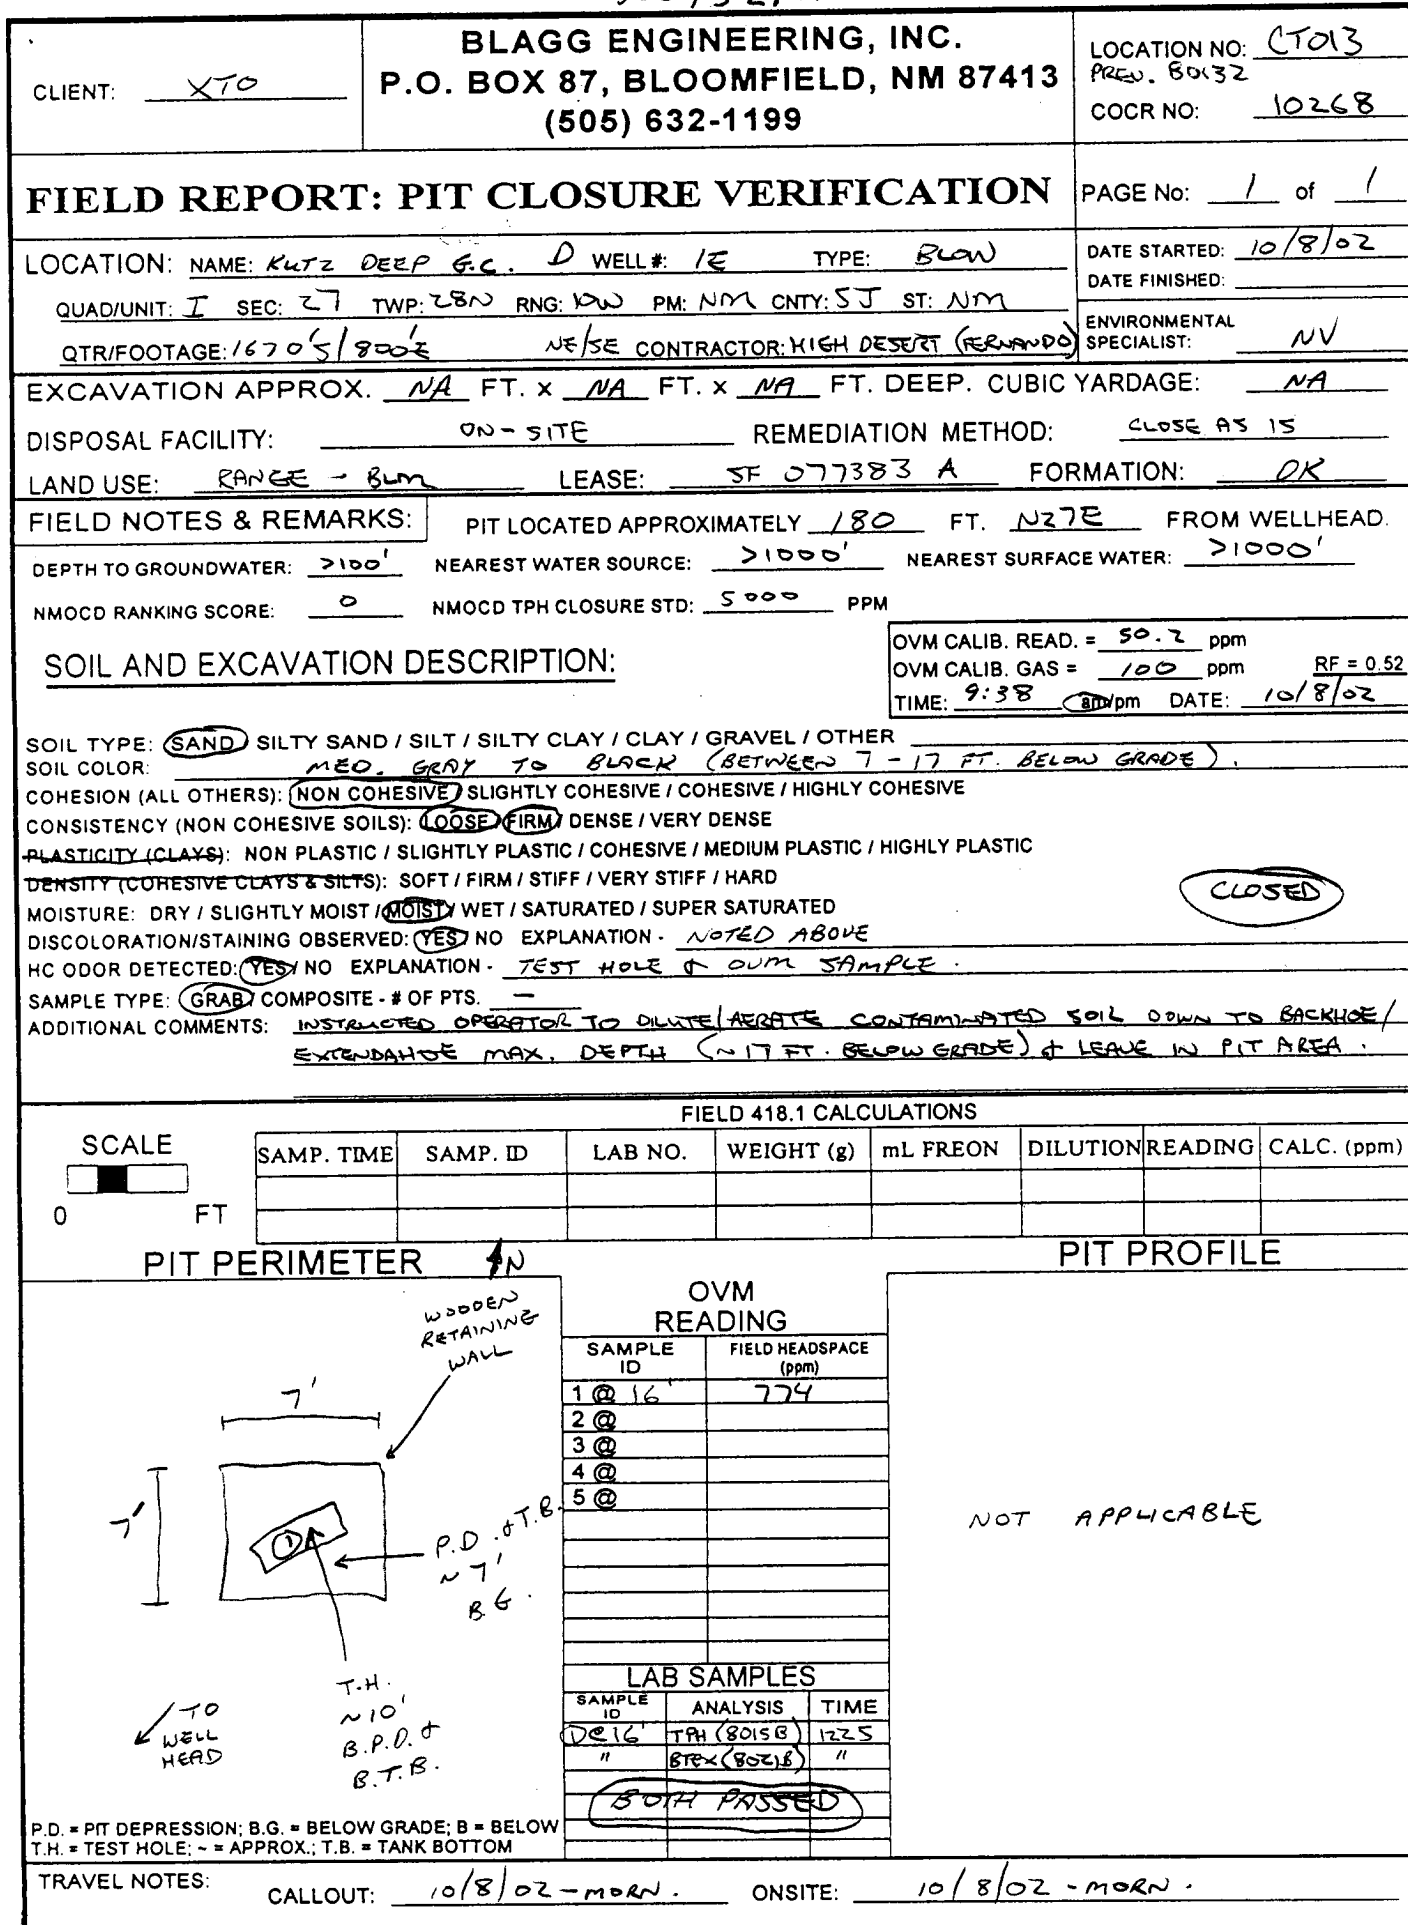 BLAGG ENGINEERING, INC.
P.O. BOX 87, BLOOMFIELD, NM 87413
(505) 632-1199
CLIENT: XTO
LOCATION NO: CT013
PREV. B0132
COCR NO: 10268
FIELD REPORT: PIT CLOSURE VERIFICATION
PAGE No: 1 of 1
LOCATION: NAME: KUTZ DEEP G.C. D WELL #: 1E TYPE: BLOW
QUAD/UNIT: I SEC: 27 TWP: 28N RNG: 10W PM: NM CNTY: SJ ST: NM
QTR/FOOTAGE: 1670'S/800'E NE/SE CONTRACTOR: HIGH DESERT (FERNANDO)
DATE STARTED: 10/8/02
DATE FINISHED:
ENVIRONMENTAL
SPECIALIST: NV
EXCAVATION APPROX. NA FT. x NA FT. x NA FT. DEEP. CUBIC YARDAGE: NA
DISPOSAL FACILITY: ON-SITE REMEDIATION METHOD: CLOSE AS IS
LAND USE: RANGE - BLM LEASE: SF 077383 A FORMATION: DK
FIELD NOTES & REMARKS: PIT LOCATED APPROXIMATELY 180 FT. N27E FROM WELLHEAD.
DEPTH TO GROUNDWATER: >100' NEAREST WATER SOURCE: >1000' NEAREST SURFACE WATER: >1000'
NMOCD RANKING SCORE: 0 NMOCD TPH CLOSURE STD: 5000 PPM
SOIL AND EXCAVATION DESCRIPTION:
OVM CALIB. READ. = 50.2 ppm
OVM CALIB. GAS = 100 ppm RF = 0.52
TIME: 9:38 am/pm DATE: 10/8/02
SOIL TYPE: SAND / SILTY SAND / SILT / SILTY CLAY / CLAY / GRAVEL / OTHER
SOIL COLOR: MED. GRAY TO BLACK (BETWEEN 7 - 17 FT. BELOW GRADE).
COHESION (ALL OTHERS): NON COHESIVE / SLIGHTLY COHESIVE / COHESIVE / HIGHLY COHESIVE
CONSISTENCY (NON COHESIVE SOILS): LOOSE / FIRM / DENSE / VERY DENSE
PLASTICITY (CLAYS): NON PLASTIC / SLIGHTLY PLASTIC / COHESIVE / MEDIUM PLASTIC / HIGHLY PLASTIC
DENSITY (COHESIVE CLAYS & SILTS): SOFT / FIRM / STIFF / VERY STIFF / HARD
MOISTURE: DRY / SLIGHTLY MOIST / MOIST / WET / SATURATED / SUPER SATURATED
CLOSED
DISCOLORATION/STAINING OBSERVED: YES / NO EXPLANATION - NOTED ABOVE
HC ODOR DETECTED: YES / NO EXPLANATION - TEST HOLE & OVM SAMPLE.
SAMPLE TYPE: GRAB / COMPOSITE - # OF PTS. —
ADDITIONAL COMMENTS: INSTRUCTED OPERATOR TO DILUTE/AERATE CONTAMINATED SOIL DOWN TO BACKHOE/
EXTENDAHOE MAX. DEPTH (~17 FT. BELOW GRADE) & LEAVE IN PIT AREA.
FIELD 418.1 CALCULATIONS
SCALE
0 FT
SAMP. TIME SAMP. ID LAB NO. WEIGHT (g) mL FREON DILUTION READING CALC. (ppm)
PIT PERIMETER N
WOODEN
RETAINING
WALL
7'
7'
1
P.D. & T.B.
~7'
B.G.
T.H.
~10'
B.P.D. &
B.T.B.
TO
WELL
HEAD
P.D. = PIT DEPRESSION; B.G. = BELOW GRADE; B = BELOW
T.H. = TEST HOLE; ~ = APPROX.; T.B. = TANK BOTTOM
OVM
READING
SAMPLE ID FIELD HEADSPACE (ppm)
1 @ 16' 774
2 @
3 @
4 @
5 @
LAB SAMPLES
SAMPLE ID ANALYSIS TIME
D@16' TPH (8015B) 1225
" BTEX (8021B) "
BOTH PASSED
PIT PROFILE
NOT APPLICABLE
TRAVEL NOTES: CALLOUT: 10/8/02 - MORN. ONSITE: 10/8/02 - MORN.